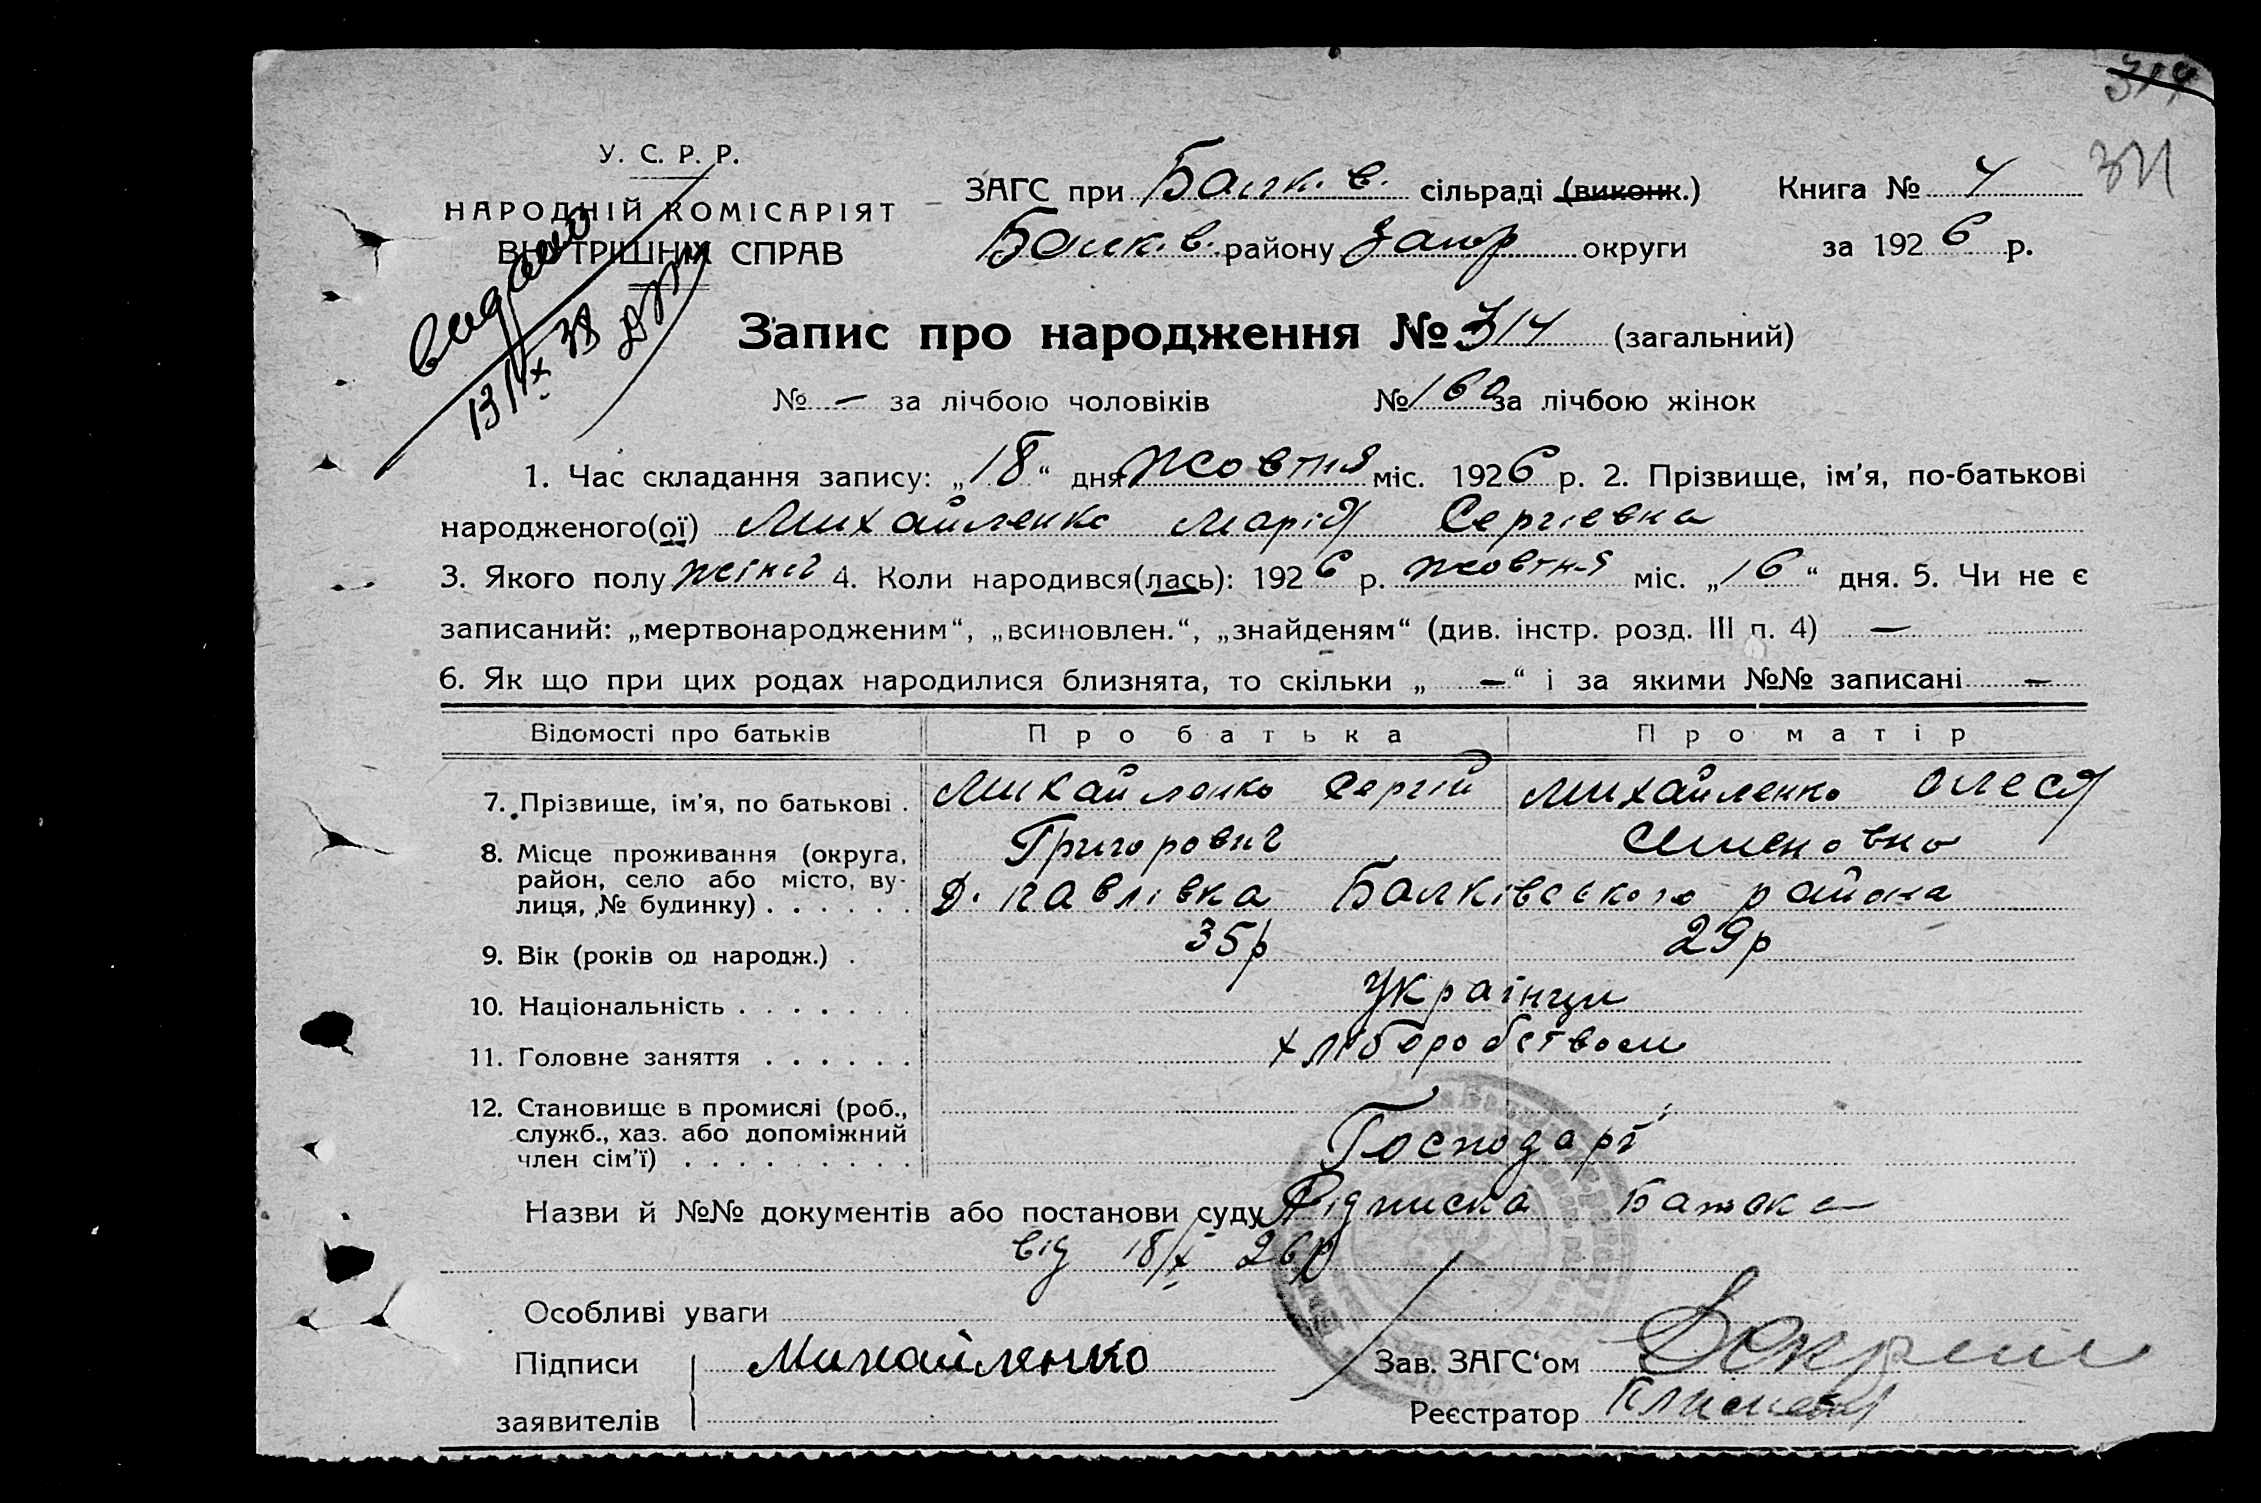 314
311
У. С. Р. Р.
НАРОДНІЙ КОМІСАРІЯТ
ВНУТРІШНІХ СПРАВ
видано
13/IX 38
ЗАГС при Балк. в. сільраді (виконк.) Книга № 4
Балк. в. району Запор округи за 1926 р.
Запис про народження № 314 (загальний)
№ — за лічбою чоловіків № 160 за лічбою жінок
1. Час складання запису: „18“ дня жовтня міс. 1926 р. 2. Прізвище, ім’я, по-батькові
народженого(ої) Михайленко Марія Сергіевна
3. Якого полу жіноч 4. Коли народився(лась): 1926 р. жовтня міс. „16“ дня. 5. Чи не є
записаний: „мертвонародженим“, „всиновлен.“, „знайденям“ (див. інстр. розд. III п. 4) —
6. Як що при цих родах народилися близнята, то скільки „ — “ і за якими №№ записані —
Відомості про батьків Про батька Про матір
7. Прізвище, ім’я, по батькові . Михайленко Сергій Михайленко Олеся
Григорович Семеновна
8. Місце проживання (округа,
район, село або місто, ву-
лиця, № будинку) . . . . . . Д. Павлівка Балківського района
9. Вік (років од народж.) . 35р 29р
10. Національність . . . . . . . Українци
11. Головне заняття . . . . . . хліборобством
12. Становище в промислі (роб.,
служб., хаз. або допоміжний
член сім’ї) . . . . . . . . . Господарі
Назви й №№ документів або постанови суду Підписка Батька
від 18/X 26р
Особливі уваги
Підписи Михайленко Зав. ЗАГС‘ом
заявителів Реєстратор